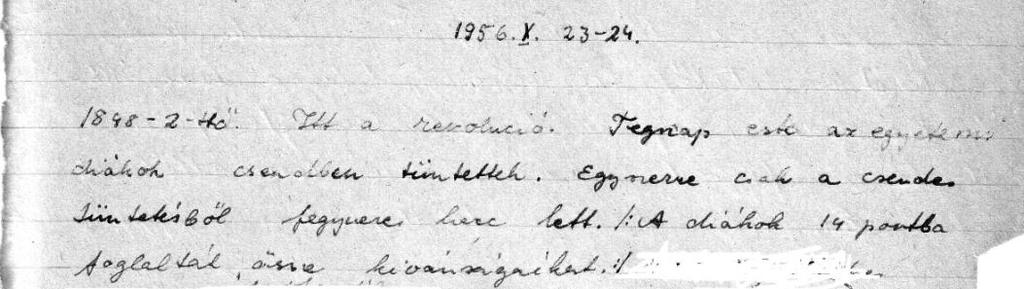 1956. X. 23-24.
1848-2-ttő. Itt a revolució. Tegnap este az egyetemi
diákok csendben tüntettek. Egyszerre csak a csendes
tüntetésből fegyveres harc lett. /:A diákok 14 pontba
foglalták össze kívánságaikat.:/